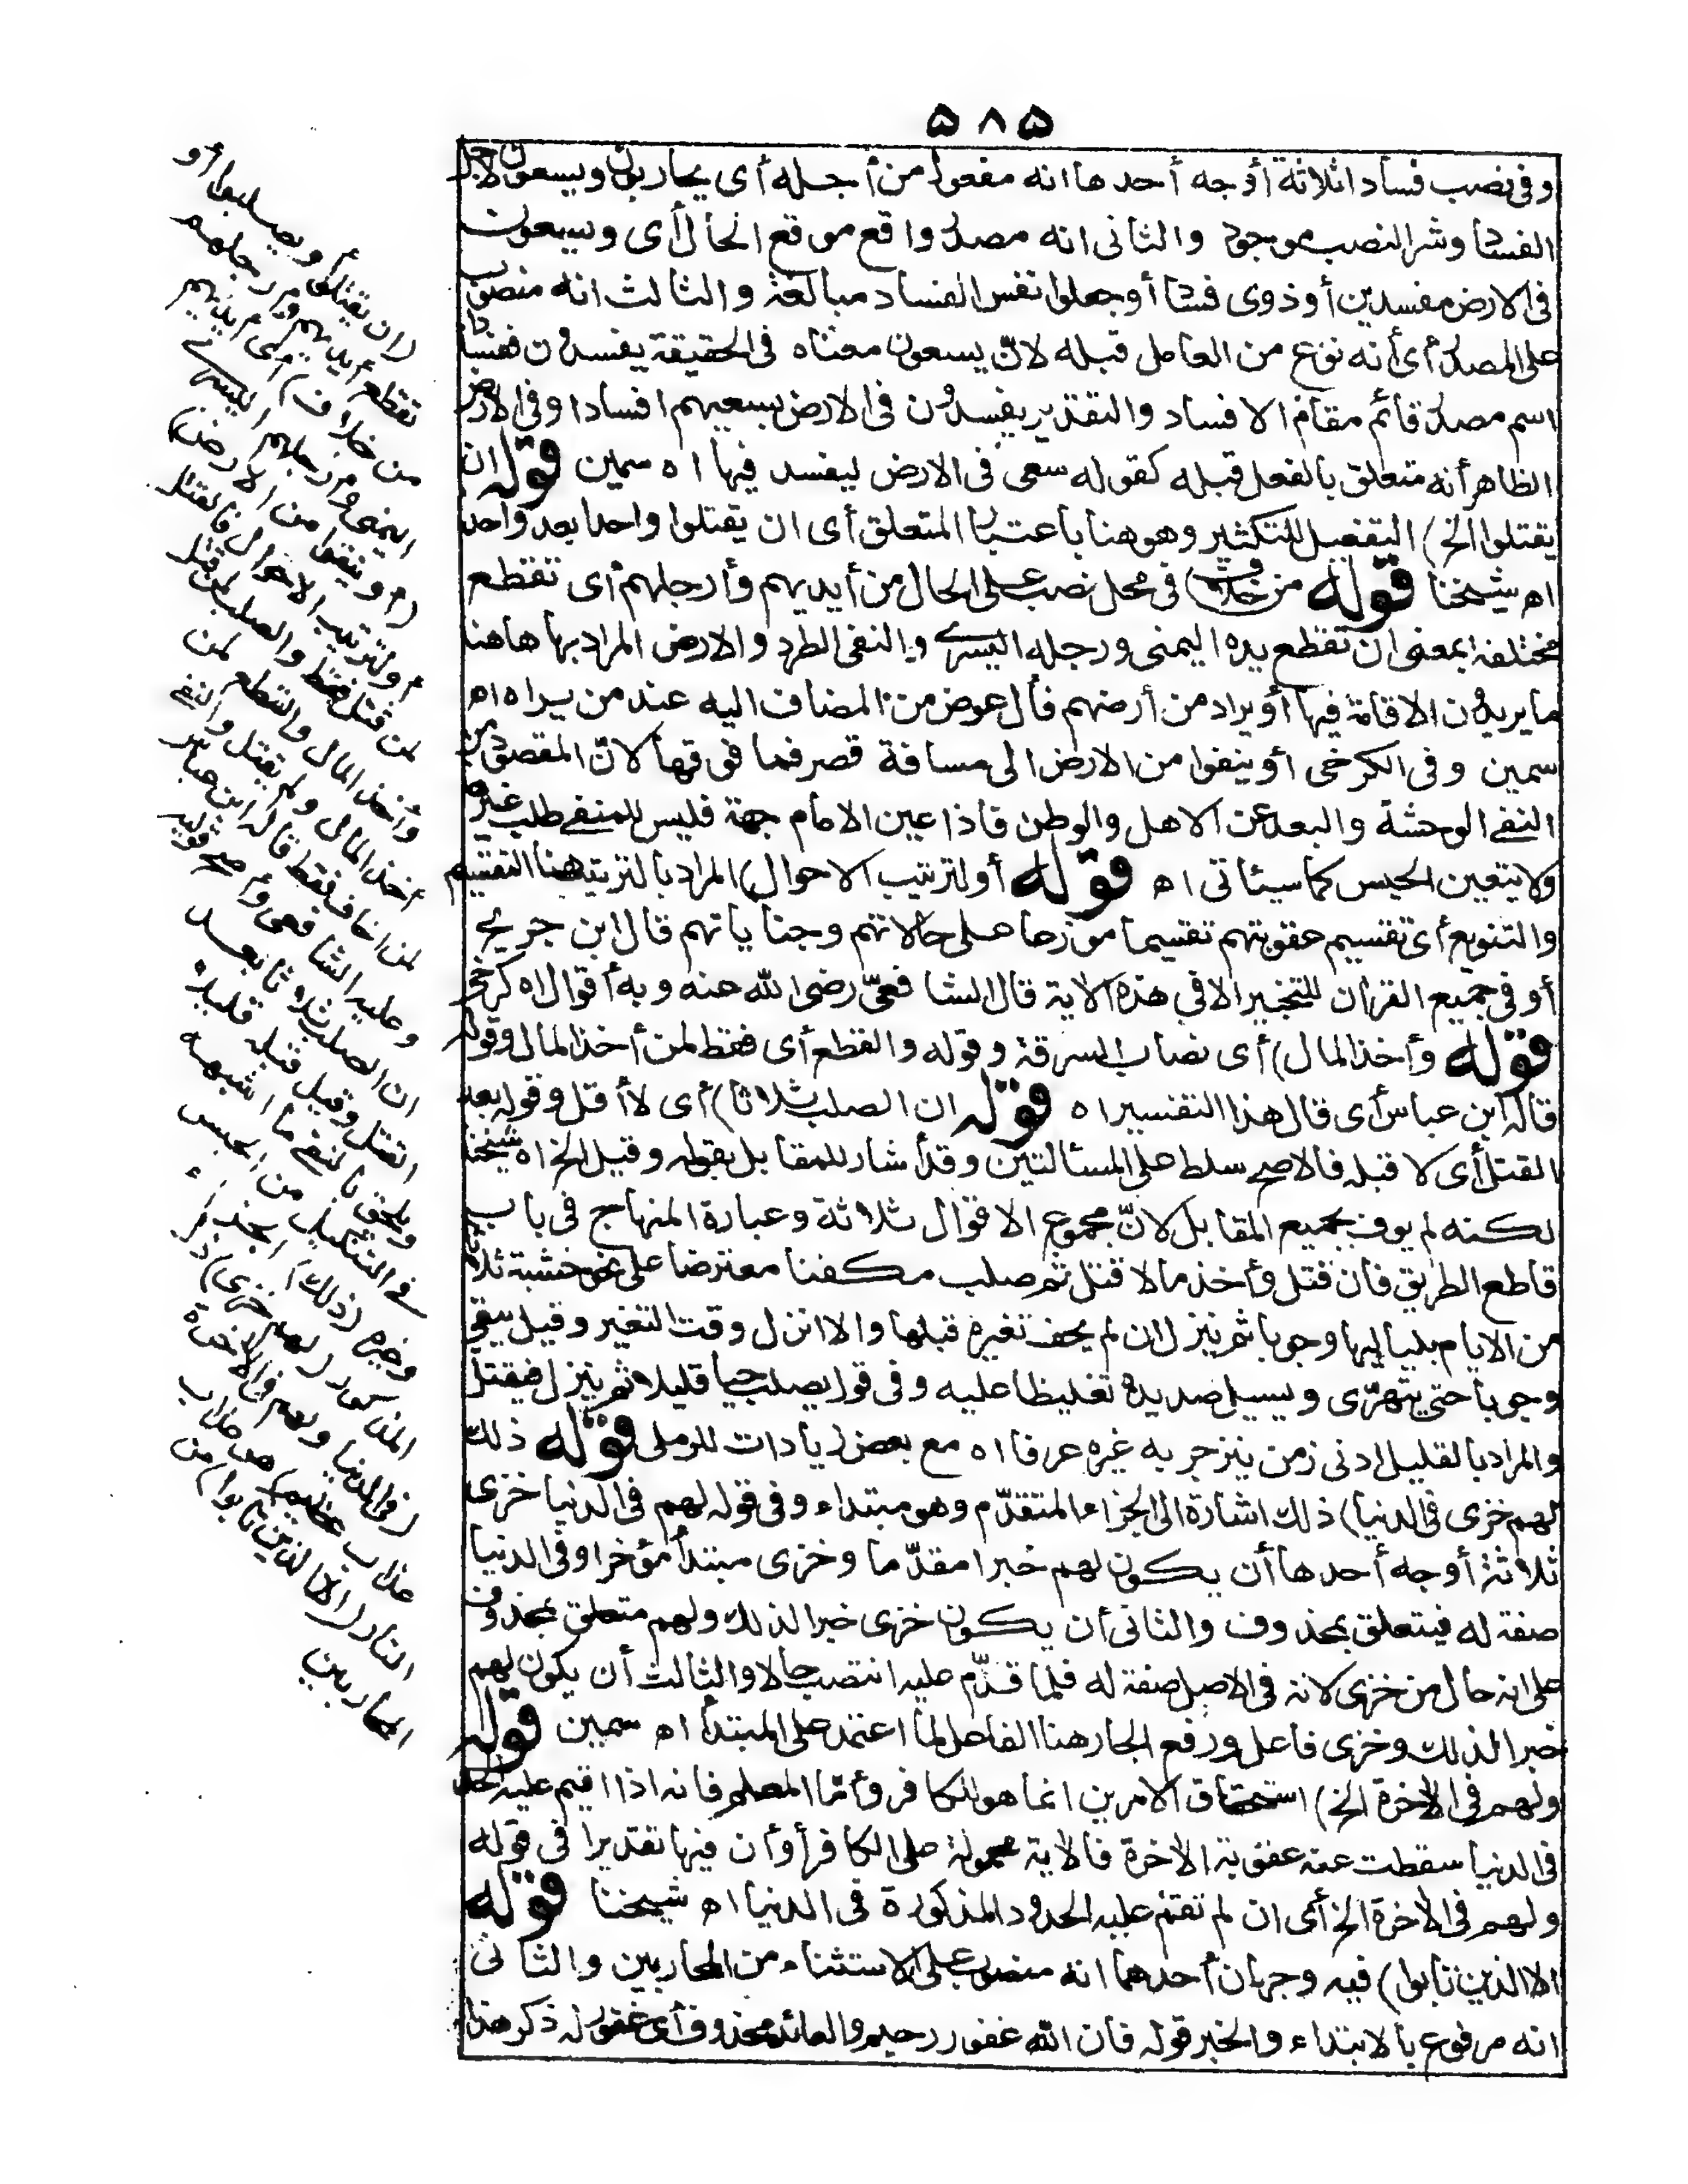 ٥٨٥
وفى نصب فسادا ثلاثة أوجه أحدها انه مفعول من أجله أى يحاربون ويسعون لاجل
الفساد وشر النصب موجود والثانى انه مصدر واقع موقع الحال أى ويسعون
فى الارض مفسدين أو ذوى فساد أو جعلوا نفس الفساد مبالغة والثالث انه منصوب
على المصدر أى أنه نوع من العامل قبله لانّ يسعون معناه فى الحقيقة يفسدون ففسادا
اسم مصدر قائم مقام الافساد والتقدير يفسدون فى الارض بسعيهم افسادا وفى الارض
الظاهر أنه متعلق بالفعل قبله كقوله سعى فى الارض ليفسد فيها اه سمين قوله ان
يقتلوا الخ) التفعيل للتكثير وهو هنا باعتبار المتعلق أى ان يقتلوا واحدا بعد واحد
اه شيخنا قوله من خلاف) فى محل نصب على الحال من أيديهم وأرجلهم أى تقطع
مختلفة بمعنى ان تقطع يده اليمنى ورجله اليسرى والنفى الطرد والارض المراد بها هاهنا
ما يريدون الاقامة فيها أو يراد من أرضهم فأل عوض من المضاف اليه عند من يراه اه
سمين وفى الكرخى أو ينفوا من الارض الى مسافة قصر فما فوقها لانّ المقصود من
النفى الوحشة والبعد عن الاهل والوطن فاذا عين الامام جهة فليس للمنفى طلب غيرها
ولا يتعين الحبس كما سيأتى اه قوله أو لترتيب الاحوال) المراد بالترتيب هنا التقسيم
والتنويع أى تقسيم عقوبتهم تقسيما موزعا على حالاتهم وجناياتهم قال ابن جريج
أو فى جميع القران للتخيير الا فى هذه الاية قال الشافعىّ رضى الله عنه وبه أقول اه كرخى
قوله وأخذ المال) أى نصاب السرقة وقوله والقطع أى فقط لمن أخذ المال وقوله
قاله ابن عباس أى قال هذا التفسير اه قوله ان الصلب ثلاثا) أى لا أقل وقوله بعد
القتل أى لا قبله فالاصح سلط على المسألتين وقد أشار للمقابل بقوله وقيل الخ اه شيخنا
لكنه لم يوف بجميع المقابل لانّ مجموع الاقوال ثلاثة وعبارة المنهاج فى باب
قاطع الطريق فان قتل وأخذ مالا قتل ثم صلب مكفنا معترضا على نحو خشبة ثلاثة
من الايام بلياليها وجوبا ثم ينزل ان لم يخف تغيره قبلها والا انزل وقت التغير وقيل يبقى
وجوبا حتى يتهرّى ويسيل صديده تغليظا عليه وفى قول يصلب حيا قليلا ثم ينزل فيقتل
والمراد بالقليل ادنى زمن ينزجر به غيره عرفا اه مع بعض زيادات للرملى قوله ذلك
لهم خزى فى الدنيا) ذلك اشارة الى الجزاء المتقدّم وهو مبتداء وفى قوله لهم فى الدنيا خزى
ثلاثة أوجه أحدها أن يكون لهم خبرا مقدّما وخزى مبتدأ مؤخرا وفى الدنيا
صفة له فيتعلق بمحذوف والثانى أن يكون خزى خبرا لذلك ولهم متعلق بمحذوف
على انه حال من خزى لانه فى الاصل صفة له فلما قدّم عليه انتصب حالا والثالث أن يكون لهم
خبرا لذلك وخزى فاعل ورفع الجار هنا الفاعل لما اعتمد على المبتدأ اه سمين قوله
ولهم فى الاخرة الخ) استحقاق الامرين انما هو للكافر وأمّا المسلم فانه اذا اقيم عليه الحد
فى الدنيا سقطت عنه عقوبة الاخرة فالاية محمولة على الكافر أو أن فيها تقديرا فى قوله
ولهم فى الاخرة الخ أى ان لم تقم عليه الحدود المذكورة فى الدنيا اه شيخنا قوله
الا الذين تابوا) فيه وجهان أحدهما انه منصوب على الاستثناء من المحاربين والثانى
انه مرفوع بالابتداء والخبر قوله فان الله غفور رحيم والعائد محذوف أى غفور له ذكر هذا
(ان يقتلوا أو يصلبوا أو
تقطع أيديهم وأرجلهم
من خلاف) أى أيديهم
اليمنى وأرجلهم اليسرى
(أو ينفوا من الارض)
أو لترتيب الاحوال فالقتل
لمن قتل فقط والصلب لمن قتل
وأخذ المال والقطع لمن
أخذ المال ولم يقتل والنفى
لمن أخاف فقط قاله ابن عباس
وعليه الشافعى وأصح قوليه
ان الصلب ثلاثا بعد
القتل وقيل قبله قليلا
ويلحق بالنفى ما أشبهه
فى التنكيل من الحبس
وغيره (ذلك) الجزاء
المذكور (لهم خزى) ذل
(فى الدنيا ولهم فى الاخرة
عذاب عظيم) هو عذاب
النار (الا الذين تابوا) من
المحاربين